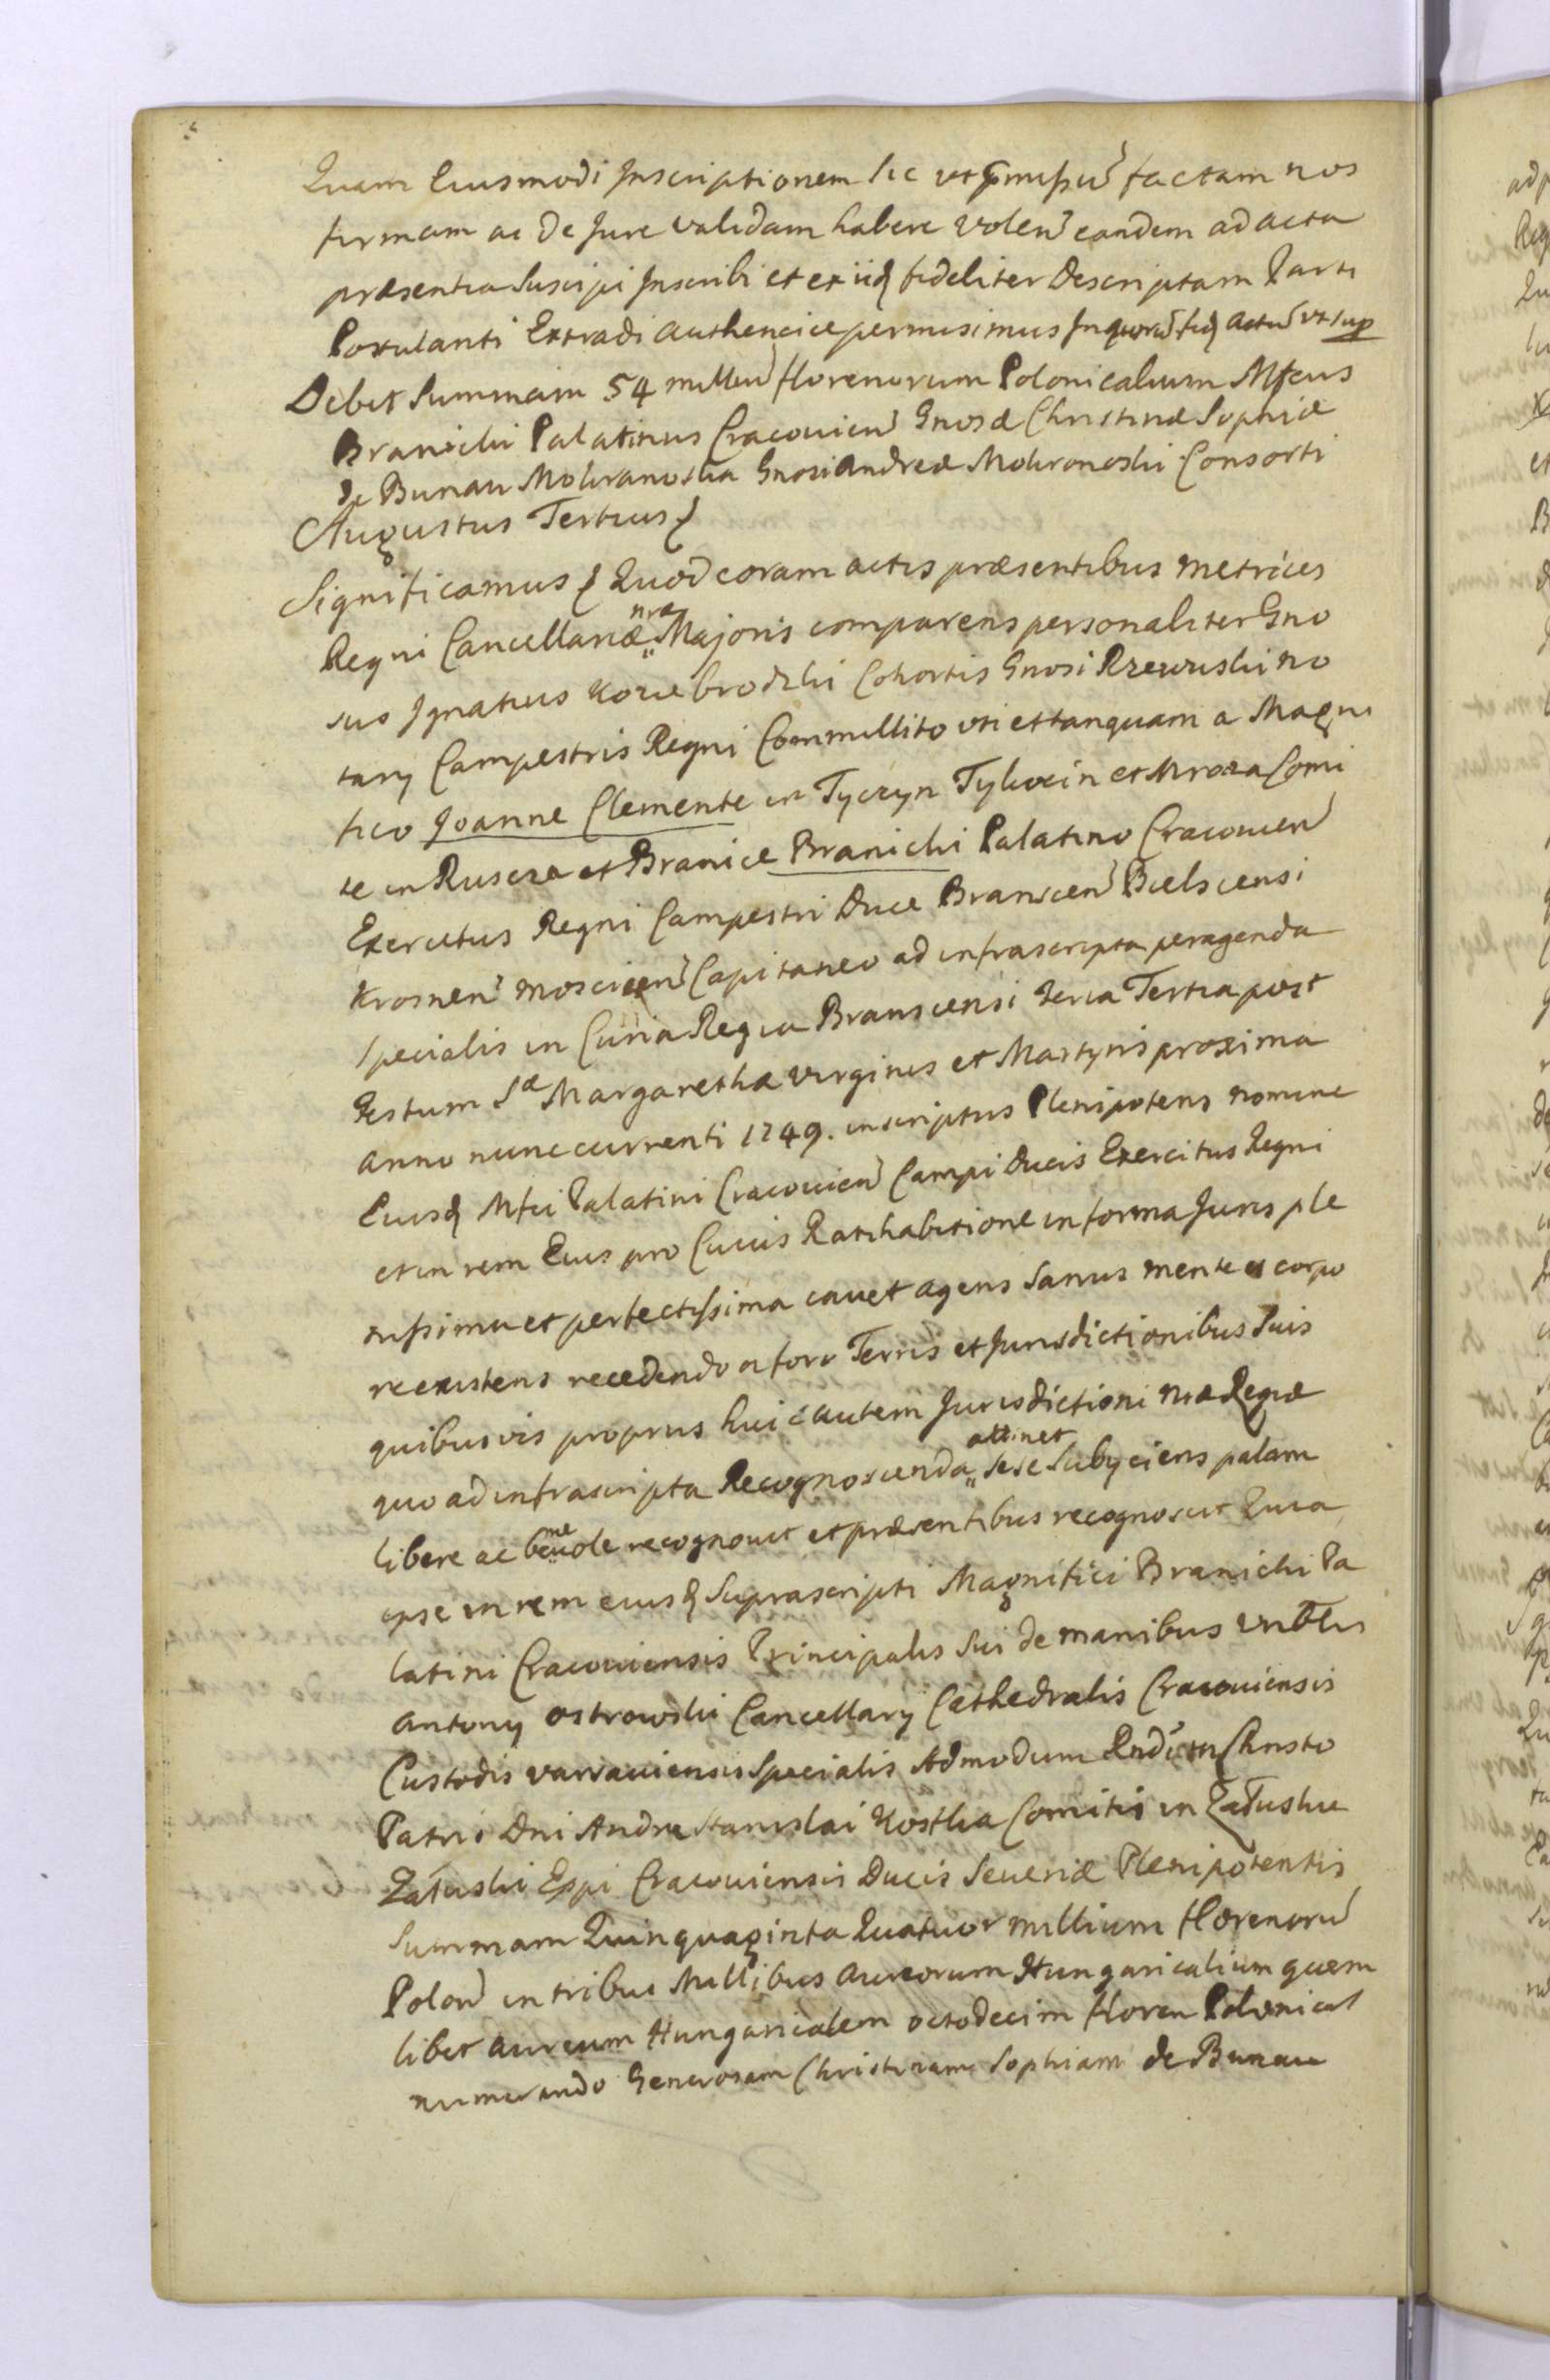 Quam Eiusmodi Inscriptionem sic ut praemissu factam nos
firmam ac de Jure validam habere volen eandem ad acta
præsentia suscipi Inscribi et ex iisd fideliter Descriptam Parti
Postulanti Extradi authentice permisimus In quoru fid actu ut sup
Debet Summam 54 milliu florenorum Polonicalium Mfcus
Branicki Palatinus Cracouien Gnosæ Christinæ Sophiæ
de Bunau Mokranoska Gnosi Andreæ Mokronoski Consorti
Augustus Tertius
Significamus Quod coram actis præsentibus metrices
Regni Cancellariæ nræ Majoris comparens personaliter Gno
sus Ignatius Koziebrodzki Cohortis Gnosi Rzewuski no
tarÿ Campestris Regni Commillito uti et tanquam a Magni
fico Joanne Clemente in Tyczyn Tykocin et Mroza Comi
te in Ruscza et Branice Branicki Palatino Cracouien
Exercitus Regni Campestri Duce Branscen Bielscensi
Krosnen moscicen Capitaneo ad infrascripta peragenda
specialis in Curia Regia Branscensi Feria Tertia post
Festum Sæ Margarethæ virginis et Martyris proxima
anno nunc currenti 1749. inscriptus Plenipotens nomine
Eiusd Mfci Palatini Cracouien Campi Ducis Exercitus Regni
et in rem Eius pro Cuius Ratihabitione in forma Juris ple
nissima et perfectissima cavet agens sanus mente et corpo
re existens recedendo a foro Terris et Jurisdictionibus suis
quibusvis proprijs huic autem Jurisdictioni nræ Regiæ
quo ad infrascripta Recognoscenda attinet sese subÿciens palam
libere ac beneuole recognouit et præsentibus recognoscit Quia
ipse in rem eiusd suprascripti Magnifici Branicki Pa
latini Cracouiensis Principalis sui de manibus Vrblis
Antonÿ Ostrowski Cancellarÿ Cathedralis Cracouiensis
Custodis varsauiensis specialis Admodum Rndi in Christo
Patris Dni Andreæ Stanislai Kostka Comitis in Załuskie
Załuski Eppi Cracouiensis Ducis Seueriæ Plenipotentis
Summam Quinquaginta Quatuor millium florenoru
Polon in tribus Millibus aureorum Hungaricalium quem
libet aureum Hungaricalem octodecim floren Polonical
numerando Generosam Christinam Sophiam de Bunau